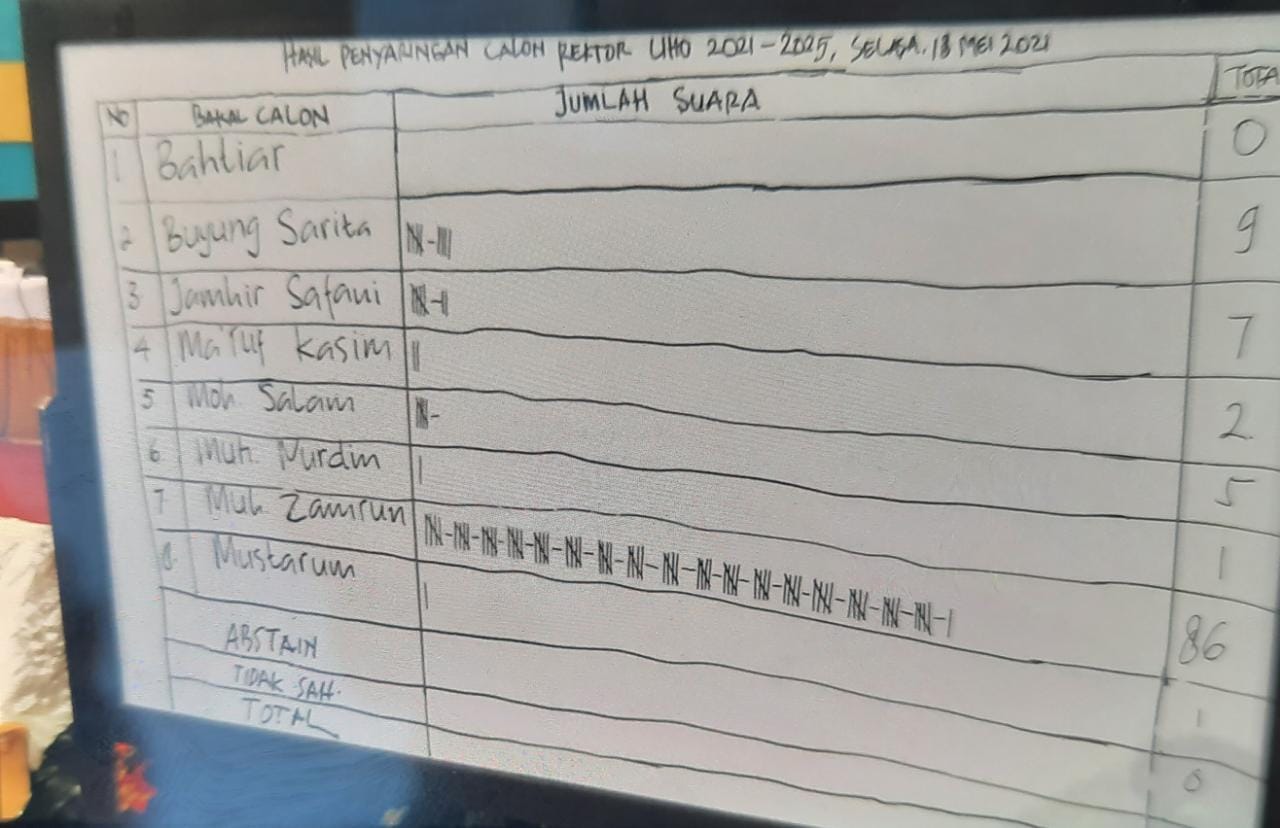 HASIL PENYARINGAN CALON REKTOR UHO 2021-2025, SELASA, 18 MEI 2021
NO BAKAL CALON JUMLAH SUARA TOTA
1 Bahtiar 0
2 Buyung Sarita 9
3 Jamhir Safani 7
4 Ma'ruf Kasim 2
5 Moh. Salam 5
6 Muh. Nurdin 1
7 Muh. Zamrun 86
8. Mustarum 1
ABSTAIN 0
TIDAK SAH.
TOTAL